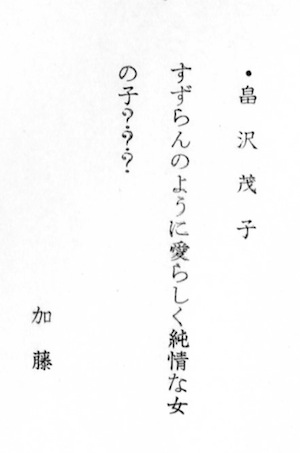 ・畠沢茂子
すずらんのように愛らしく純情な女
の子？？？
加藤